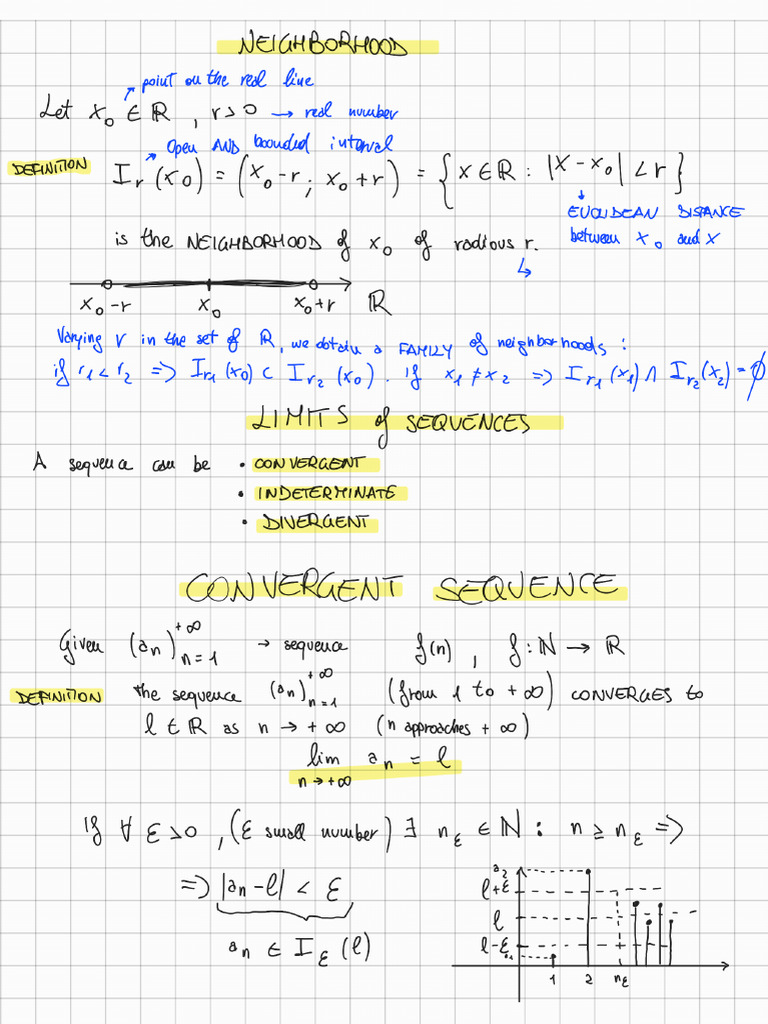 NEIGHBORHOOD
point on the real line
Let x₀ ∈ ℝ , r > 0 → real number
Open AND bounded interval
DEFINITION I_r (x₀) = (x₀-r ; x₀+r) = {x ∈ ℝ : |x-x₀| < r}
EUCLIDEAN DISTANCE
between x₀ and x
is the NEIGHBORHOOD of x₀ of radious r.
x₀-r x₀ x₀+r ℝ
Varying r in the set of ℝ, we obtain a FAMILY of neighborhoods :
if r₁ < r₂ => I_r₁ (x₀) ⊂ I_r₂ (x₀) . if x₁ ≠ x₂ => I_r₁ (x₁) ∧ I_r₂ (x₂) = ∅
LIMITS of SEQUENCES
A sequence can be • CONVERGENT
• INDETERMINATE
• DIVERGENT
CONVERGENT SEQUENCE
Given (aₙ)_{n=1}^{+∞} → sequence f(n) , f : ℕ → ℝ
DEFINITION the sequence (aₙ)_{n=1}^{+∞} (from 1 to +∞) CONVERGES to
l ∈ ℝ as n → +∞ (n approaches +∞)
lim aₙ = l
n→+∞
If ∀ ε > 0 , (ε small number) ∃ n_ε ∈ ℕ : n ≥ n_ε =>
=> |aₙ-l| < ε
aₙ ∈ I_ε (l)
a₂
l+ε
l
l-ε
a₁
1 2 n_ε